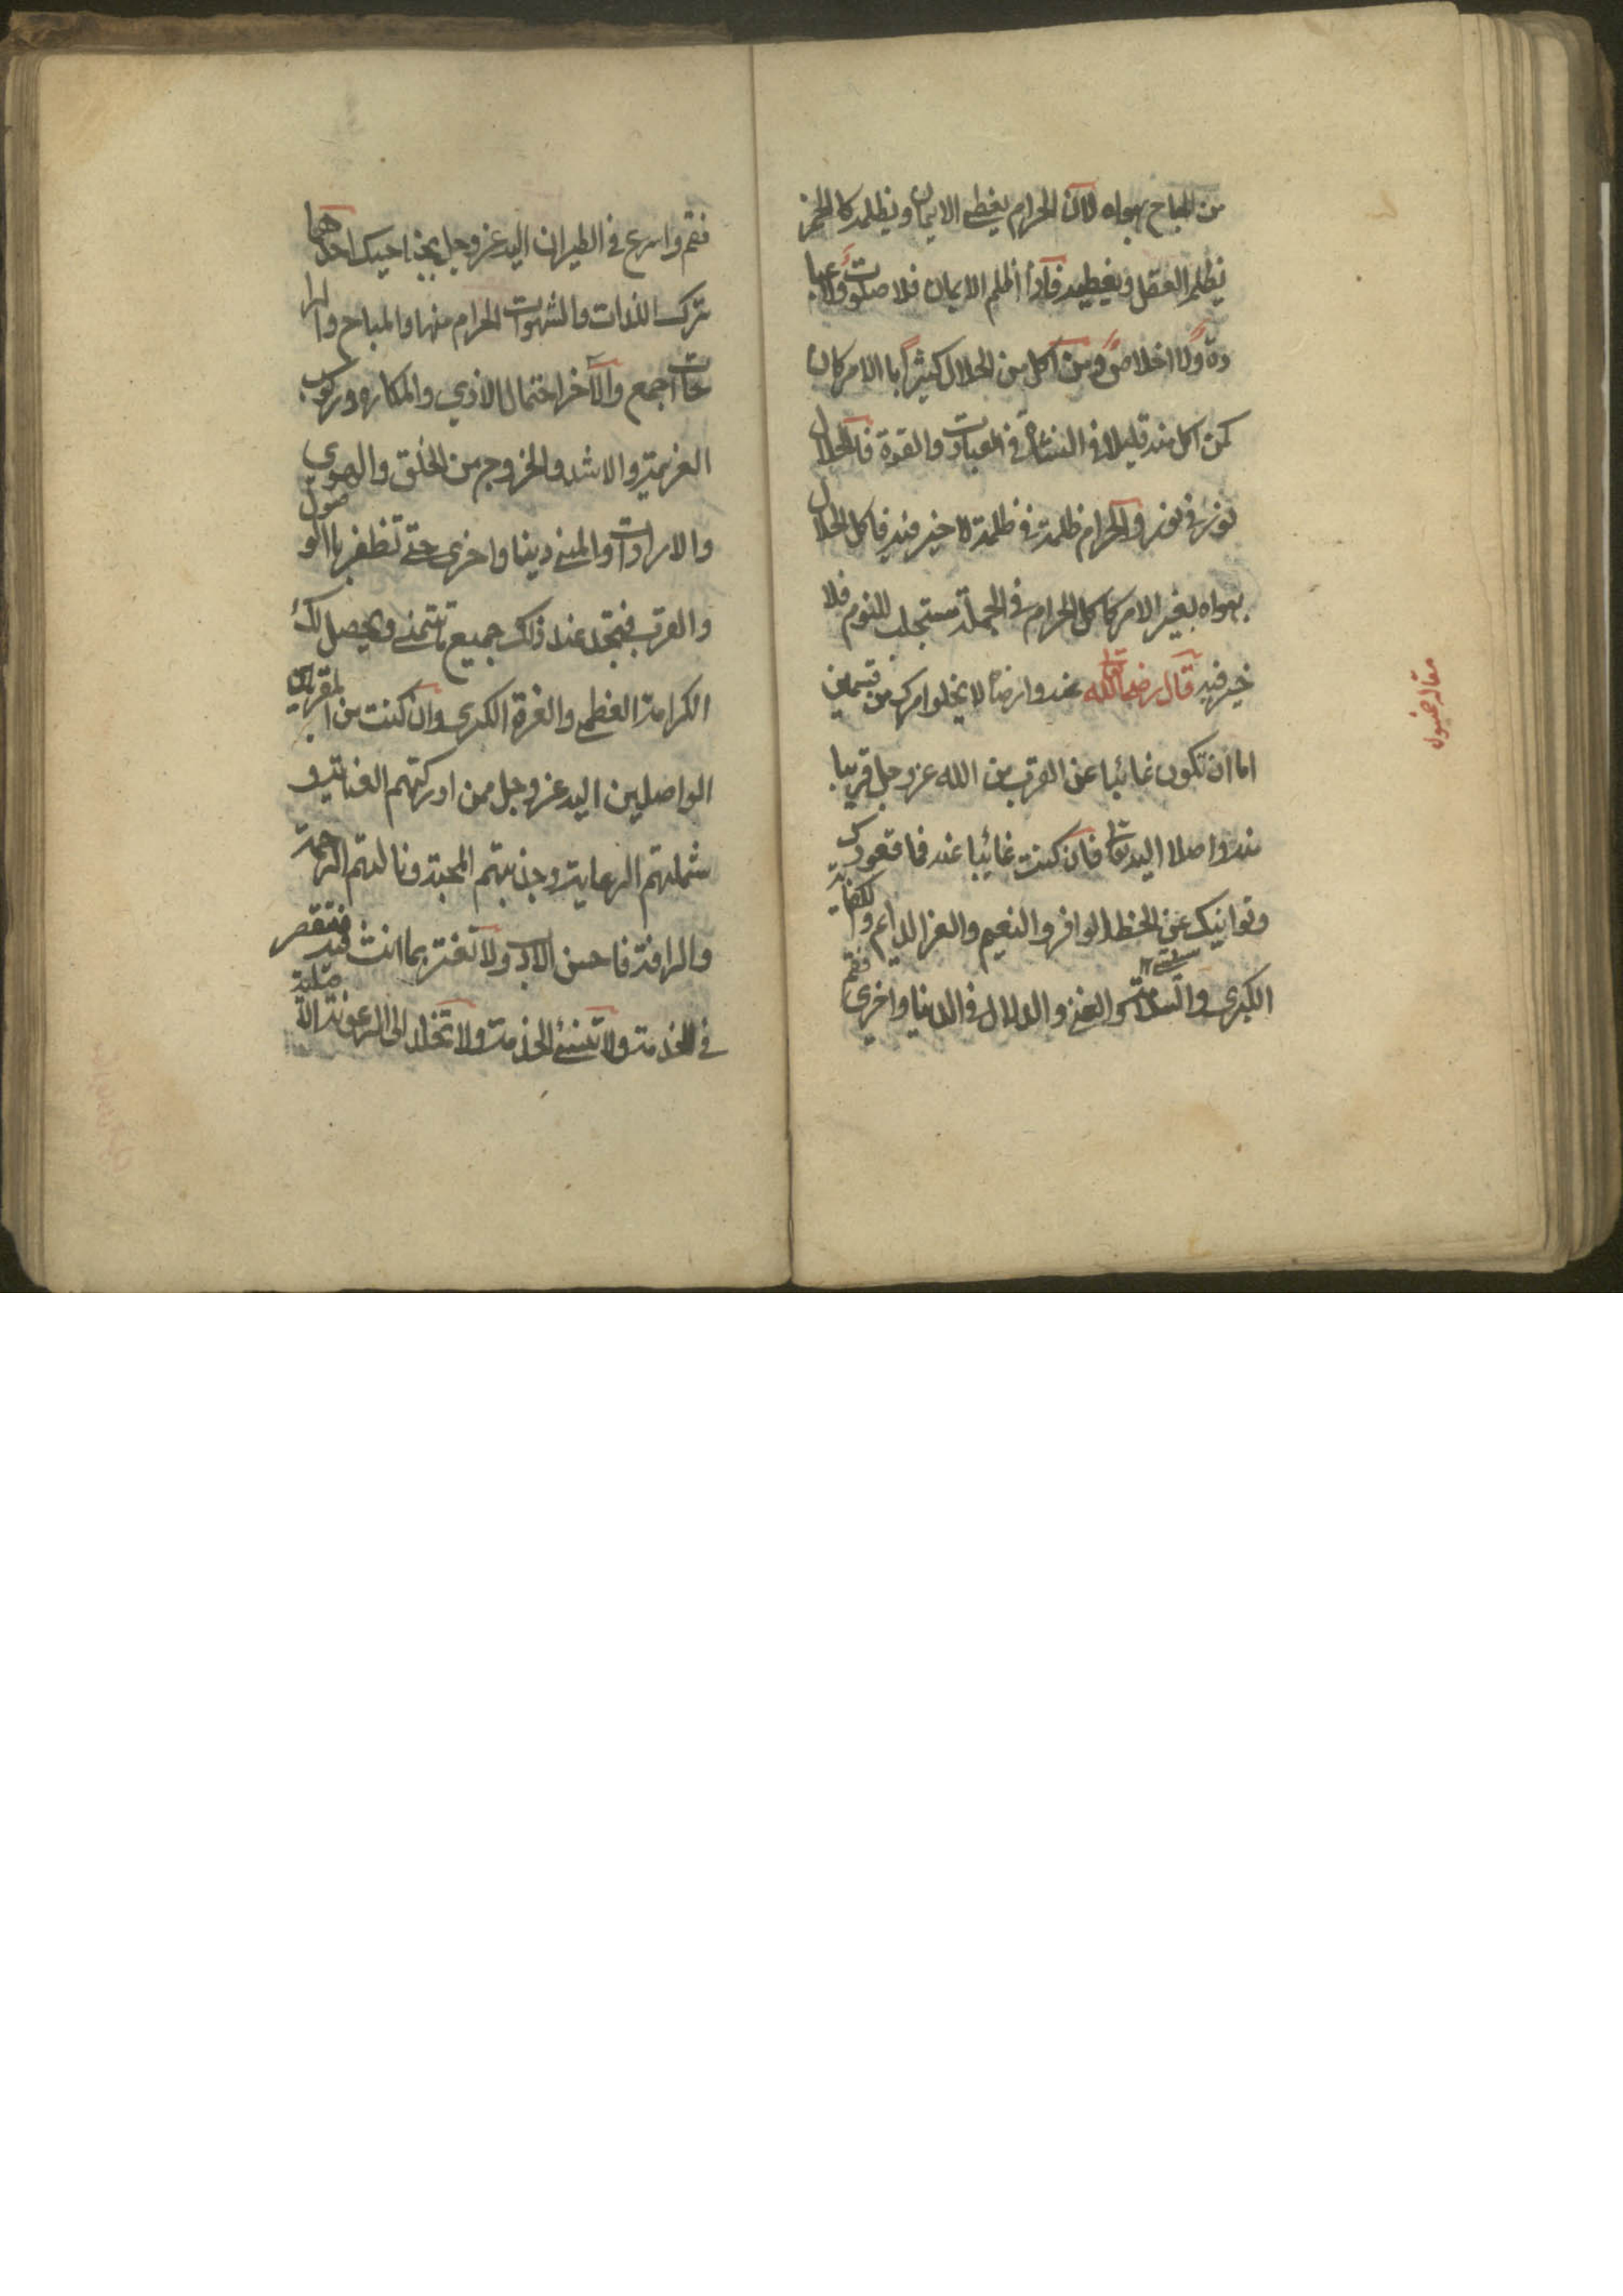 من المباح بهواه لان الحرام يغطي الايمان ويظلمه كالخمر
يظلم العقل ويغطيه فاذا اظلم الايمان فلا صلوت ولا عبا
دة ولا اخلاص ومن اكل من الحلال كثيرا با الامر كان
كمن اكل منه قليلا في النشاة في العبادت والقوة فالحلال
نور في نور والحرام ظلمة في ظلمة لا خير فيه فاكل الحلال
بهواه بغير الامر كاكل الحرام في الجملة مستجلب للنوم فلا
خير فيه قال رضي الله تعا عنه وارضاه لا يخلوا امرك من قسمين
اما ان تكون غائبا عن القرب من الله عز وجل او قريبا
منه واصلا اليه تعا فان كنت غائبا عنه فما قعودك
وتوانيك عن الحظ الوافر والنعيم والعز الدايم والكفاية
الكبرى والسلامة والغنى والدلال في الدنيا واخرى فقم
مقاله
فقم واسرع في الطيران اليه عز وجل بجناحيك احدهما
ترك اللذات والشهوات الحرام منها والمباح والرا
حات اجمع والآخر احتمال الاذي والمكاره وركوب
العزيمة والاشد والخروج من الخلق والهوى
والارادات والمنى دينا واخرى حتى تظفر با الوصول
والقرب فتجد عند ذلك جميع ما تتمنى ويحصل لك
الكرامة العظمى والعزة الكبرى وان كنت من المقربين
الواصلين اليه عز وجل ممن ادركتهم العناية و
شملتهم الرعاية وجذبتهم المحبة ونالتهم الرحمة
والرافة فاحسن الادب ولا تغتر بما انت فيه فتقصر
في الخدمة ولا الخدمة ولا تخلد الى الرعونة الاصلية